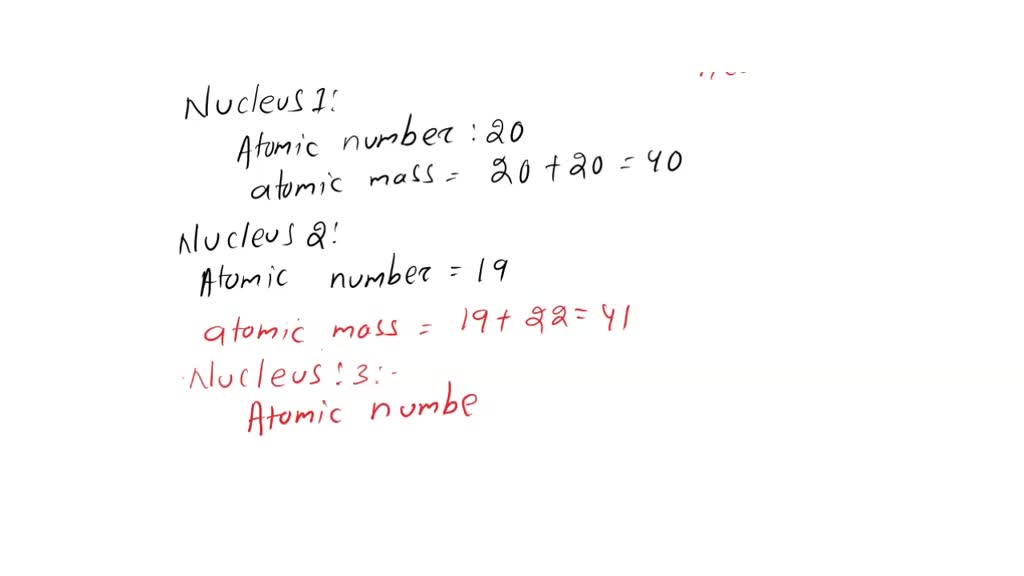 Nucleus 1:
Atomic number : 20
atomic mass = 20 + 20 = 40
Nucleus 2:
Atomic number = 19
atomic mass = 19 + 22 = 41
Nucleus : 3:-
Atomic numbe